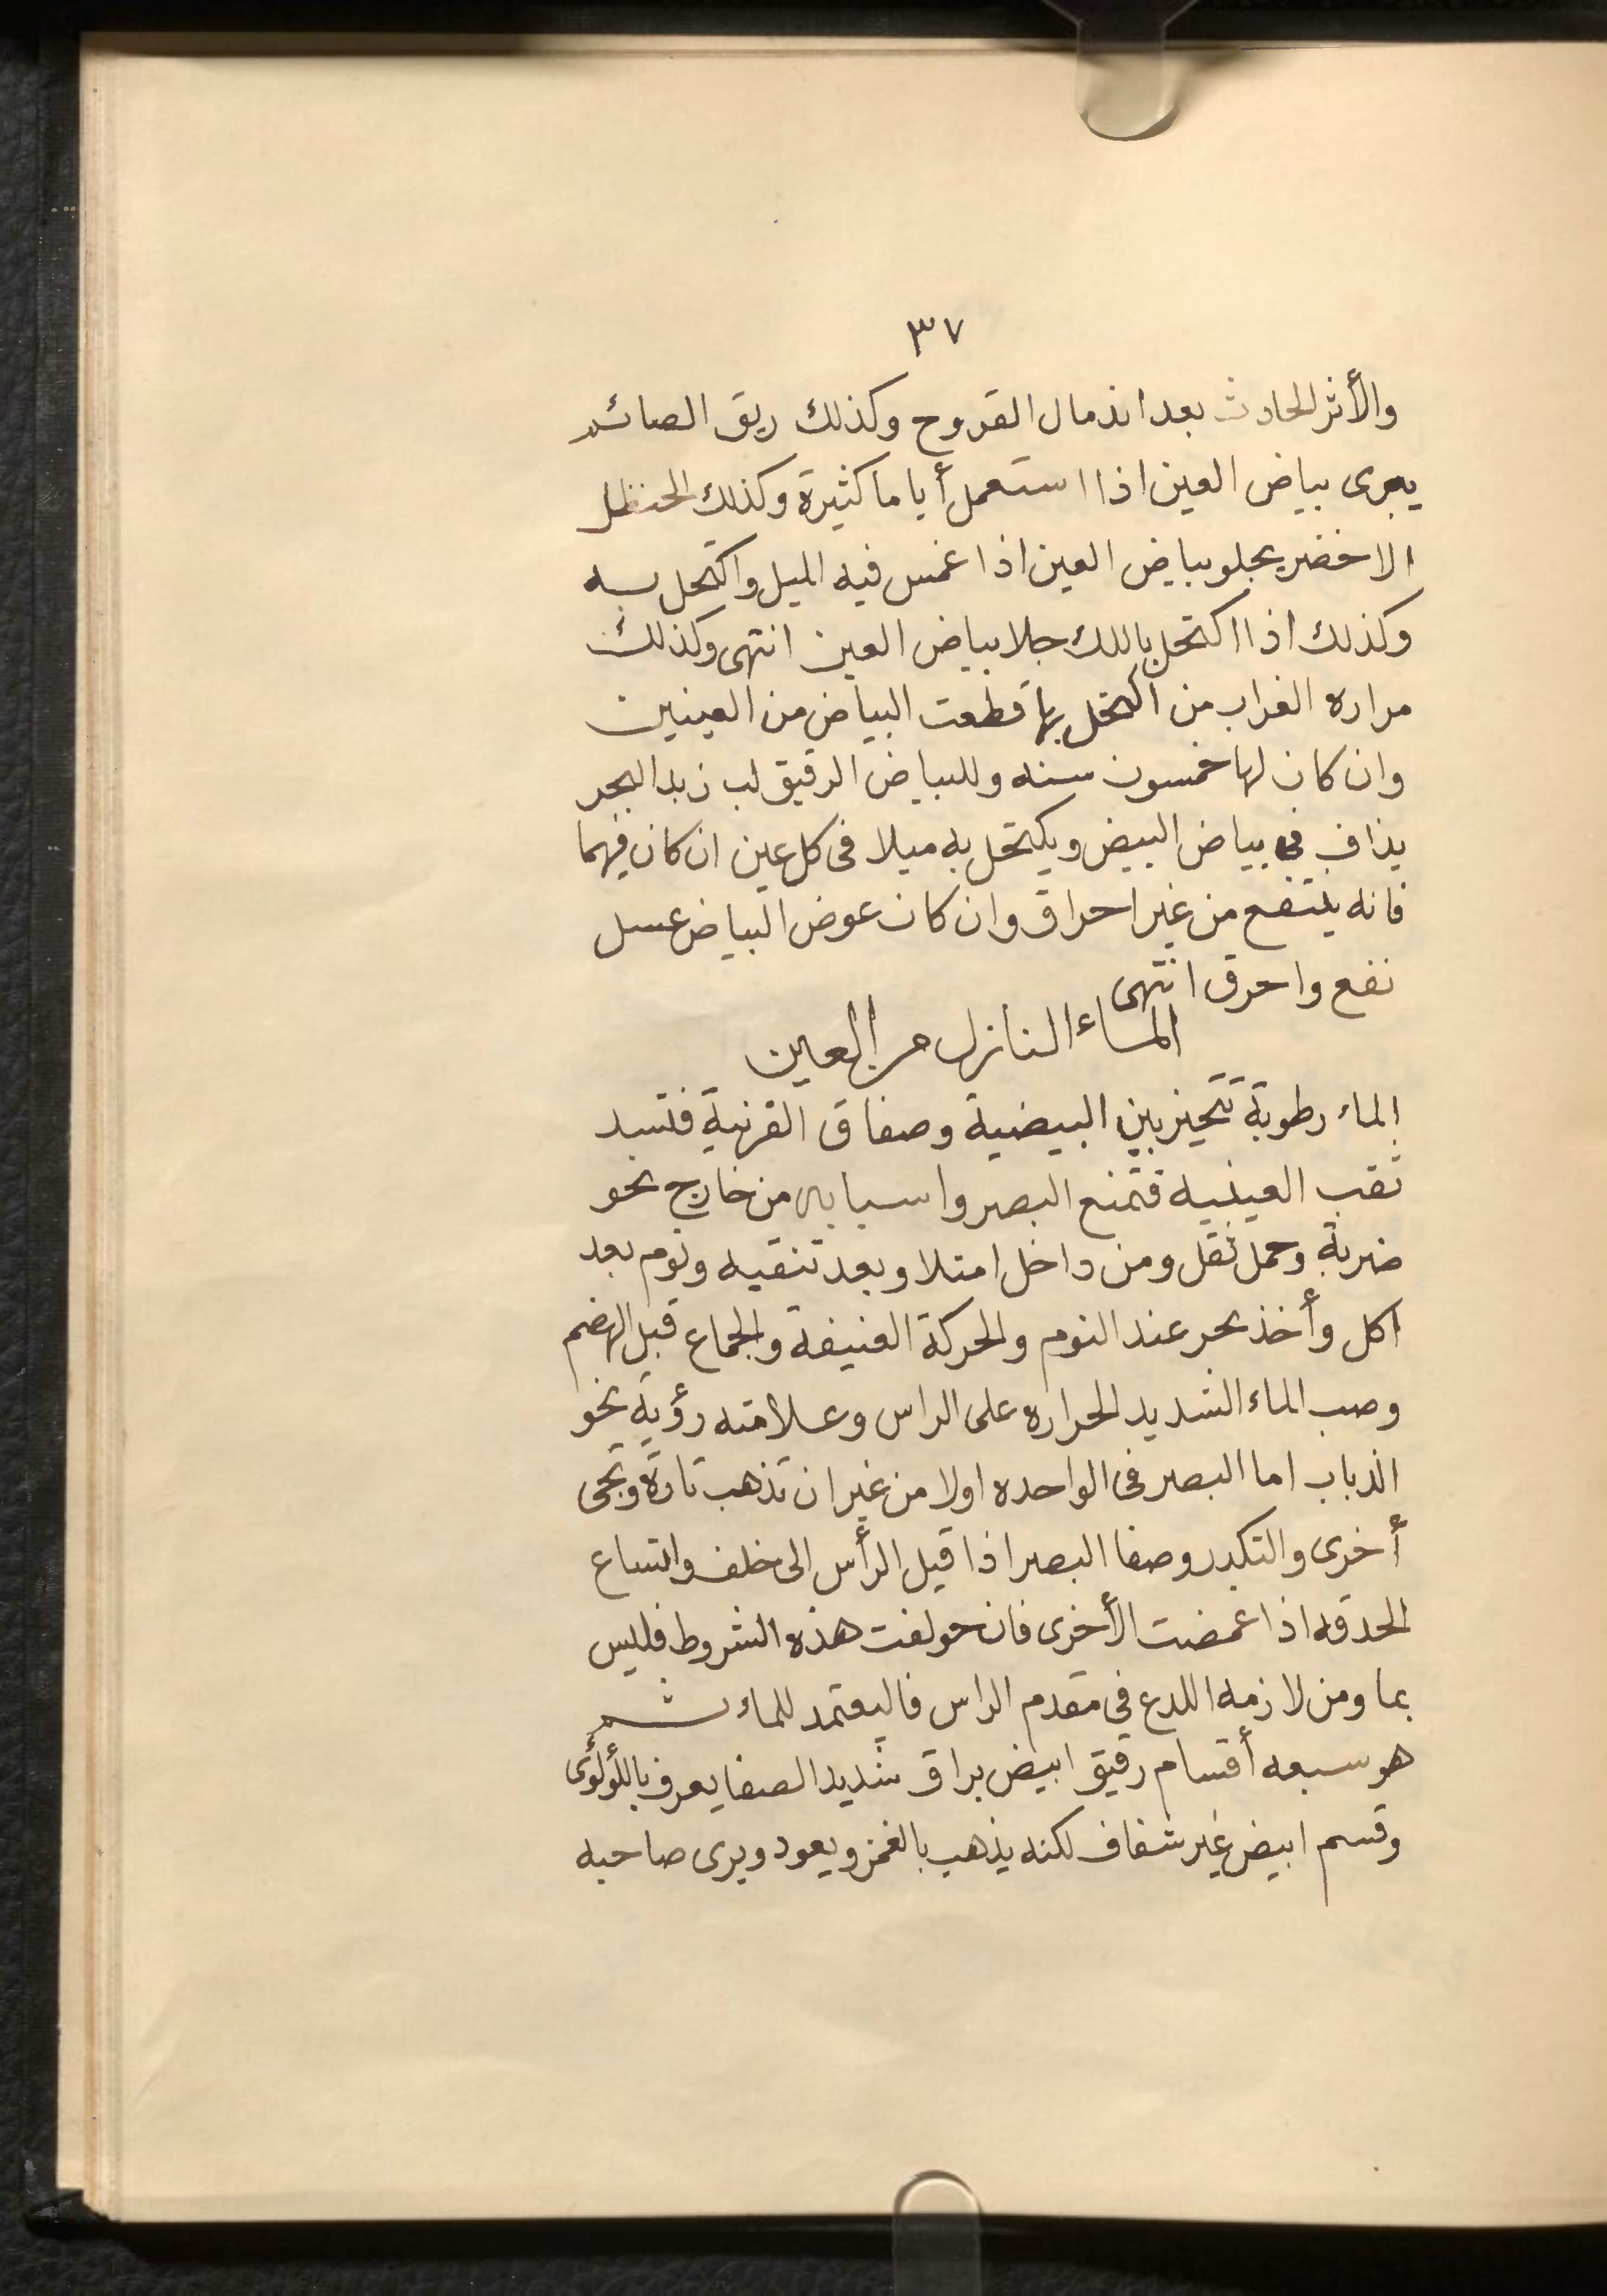 ٣٧
والأثر الحادث بعد اندمال القروح وكذلك ريق الصائم
يبرى بياض العين اذا استعمل أياما كثيرة وكذلك الحنظل
الاخضر يجلو بياض العين اذا غمس فيه الميل واكتحل به
وكذلك اذا اكتحل باللك جلا بياض العين انتهى وكذلك
مراره الغراب من اكتحل بها قطعت البياض من العينين
وان كان لها خمسون سنه وللبياض الرقيق لب زبد البحر
يذاف فى بياض البيض ويكتحل به ميلا فى كل عين ان كان فيهما
فانه ينتفع من غير احراق وان كان عوض البياض عسل
نفع واحرق انتهى
الماء النازل من العين
الماء رطوبة تتحيز بين البيضية وصفاق القرنية فتسد
ثقب العينيه فتمنع البصر واسبابه من خارج نحو
ضربة وحمل ثقل ومن داخل امتلا وبعد تنقيه ونوم بعد
اكل وأخذ بخر عند النوم والحركة العنيفة والجماع قبل الهضم
وصب الماء الشديد الحراره على الراس وعلامته رؤية نحو
الذباب اما البصر فى الواحده اولا من غير ان تذهب تارة وتجى
أخرى والتكدر وصفا البصر اذا قيل الرأس الى خلف واتساع
الحدقه اذا غمضت الأخرى فان خولفت هذه الشروط فليس
بما ومن لازمه اللدع فى مقدم الراس فاليعتمد للماء ثم
هو سبعه أقسام رقيق ابيض براق شديد الصفا يعرف باللؤلؤى
وقسم ابيض غير شفاف لكنه يذهب بالغمز ويعود ويرى صاحبه